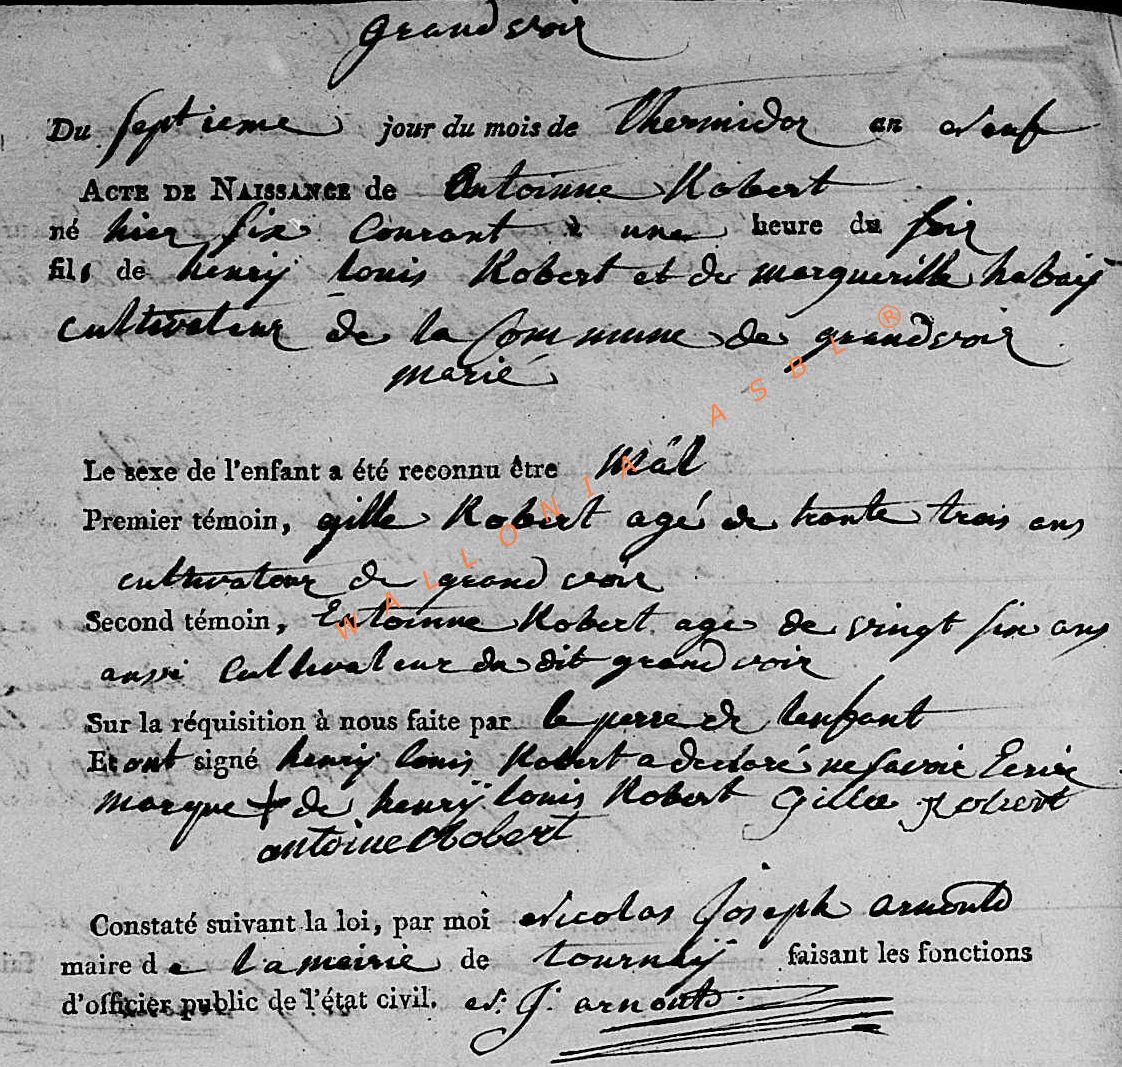 grandvoir
Du septieme jour du mois de thermidor an neuf
ACTE DE NAISSANCE de Antoinne Robert
né hier six Courant à une heure du soir
fils de henrÿ louis Robert et de margueritte habaÿ
cultivateur de la Commune de grandvoir
marié
Le sexe de l'enfant a été reconnu être mâl
Premier témoin, gille Robert agé de trante trois ans
cultivateur de grandvoir
Second témoin, Entoinne Robert age de vingt six ans
aussi Cultivateur du dit grandvoir
Sur la réquisition à nous faite par le perre de lenfant
Et ont signé henrÿ louis Robert a declaré ne savoir Ecrire
marque + de henrÿ louis Robert Gillee Robert
antoine Robert
Constaté suivant la loi, par moi Nicolas Joseph arnould
maire de la mairie de tournaÿ faisant les fonctions
d'officier public de l'état civil. N: J: arnould.
WALLONIA ASBL ®